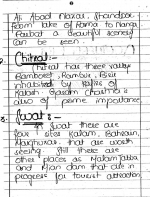 Ali Abad Naran, Shandoor
take of Hanna to Nanga
Parbat a beautiful scenery
can be seen
Chitral:-
Chitral has three valleys
Bamboret, Rambur, Birir
inhabited by
Kalash
also of prime importance
Swat:-
Swat there are
four sites Kalam, Bahrain,
that are worth
seeing. Still there are
other places as Malam Jabba
and Mian dam that are in
progress for tourist attraction